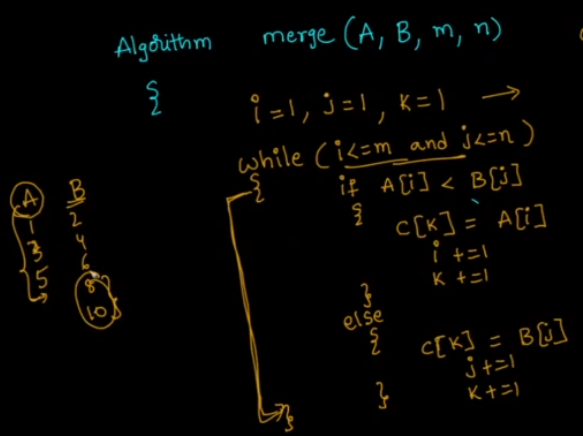 Algorithm merge (A, B, m, n)
{
i=1, j=1, k=1 →
while (i<=m and j<=n)
{
if A[i] < B[j]
{
C[K] = A[i]
i +=1
K +=1
}
else
{
C[K] = B[j]
j+=1
K+=1
}
}
A B
1 2
3 4
5 6
8
10